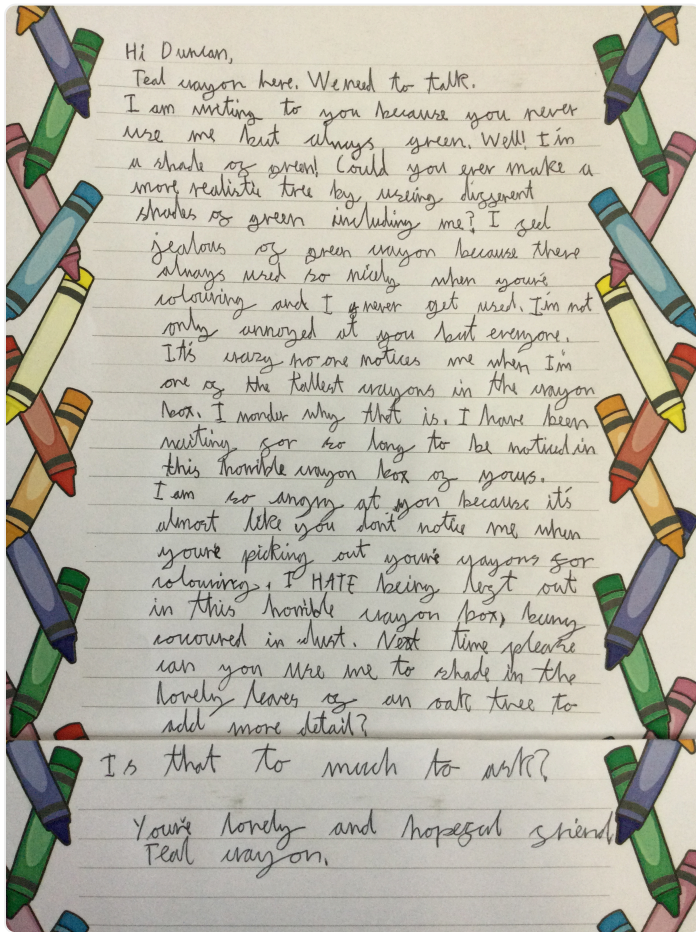 Hi Duncan,
Teal crayon here. We need to talk.
I am writing to you because you never
use me but always green. Well! I'm
a shade of green! Could you ever make a
more realistic tree by useing different
shades of green including me? I feel
jealous of green crayon because there
always used so nicely when you're
colouring and I never get used. I'm not
only annoyed at you but everyone.
It's crazy no-one notices me when I'm
one of the tallest crayons in the crayon
box. I wonder why that is. I have been
waiting for so long to be noticed in
this horrible crayon box of yours.
I am so angry at you because it's
almost like you don't notice me when
you're picking out you're crayons for
colouring. I HATE being left out
in this horrible crayon box, being
coucoured in dust. Next time please
can you use me to shade in the
lovely leaves of an oak tree to
add more detail?
Is that to much to ask?
You're lovely and hopefal friend
Teal crayon.